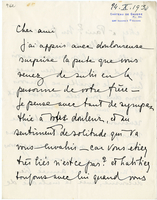 14. X. 193
Cher ami
J'ai appris avec douloureuse
surprise la perte que vous
venez de subir en la
personne de votre frère
je pense avec tant de sympa-
thie à votre douleur, et au
sentiment de solitude qui va
vous envahir — car vous étiez
très liés n'est ce pas? et
toujours avec lui quand vous